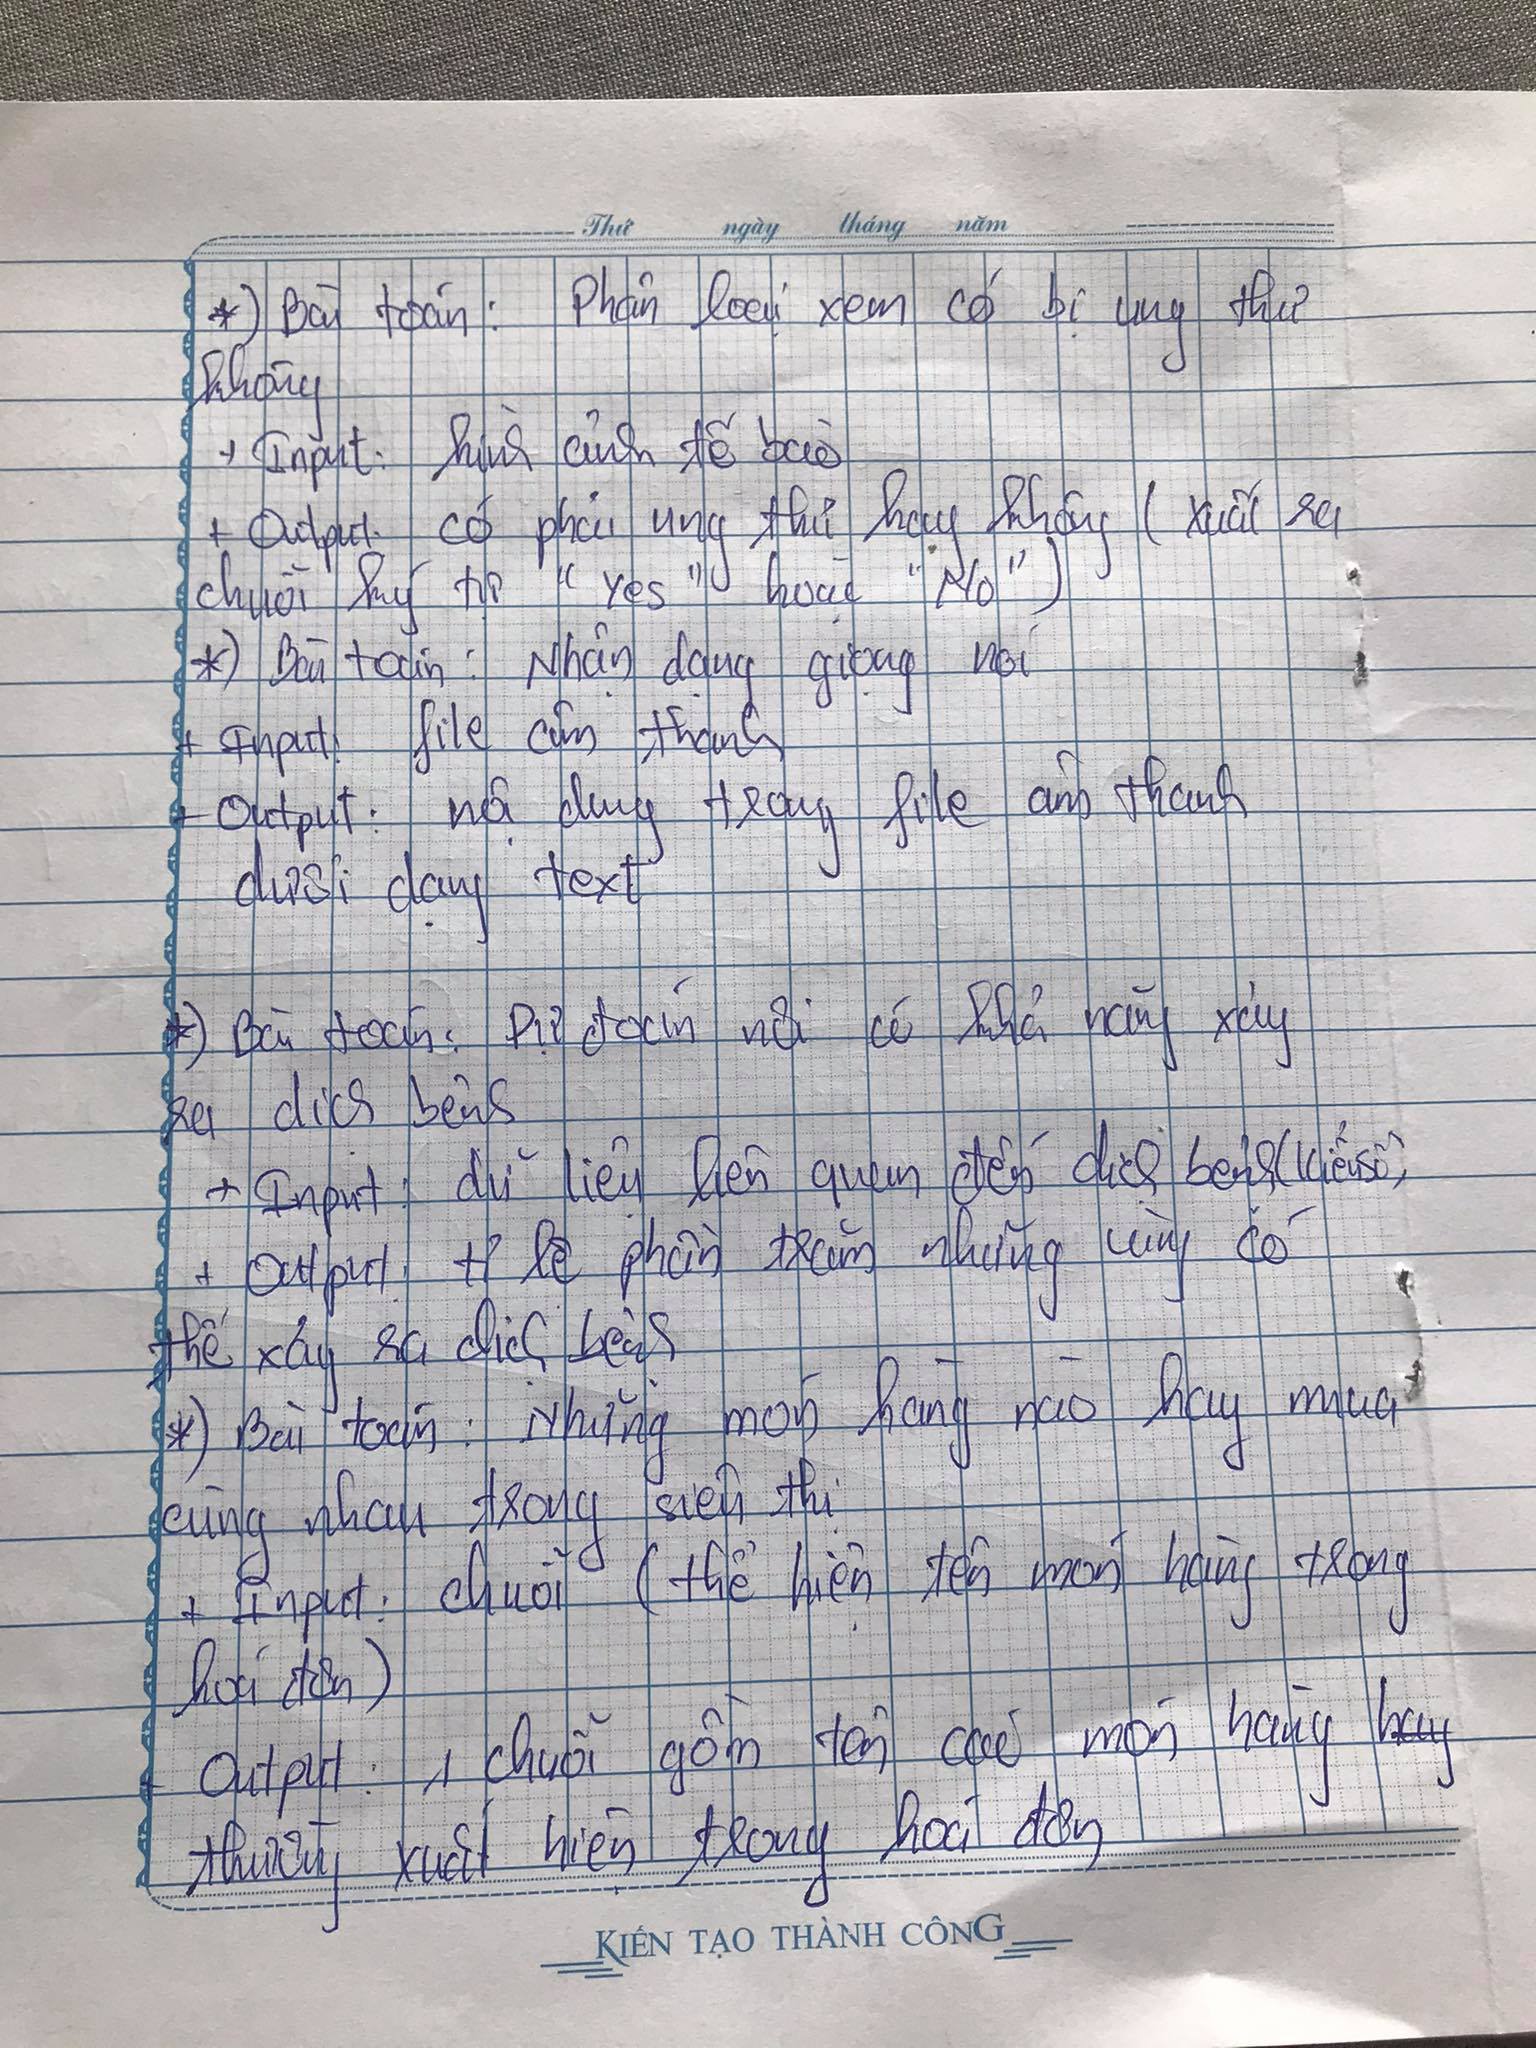 Thứ ngày tháng năm
*) Bài toán: Phân loại xem có bị ung thư
không
+ Input: hình ảnh tế bào
+ Output: có phải ung thư hay không (xuất ra
chuỗi ký tự "Yes" hoặc "No")
*) Bài toán: Nhận dạng giọng nói
+ Input: file âm thanh
+ Output: nội dung trong file âm thanh
dưới dạng text
*) Bài toán: Dự đoán nơi có khả năng xảy
ra dịch bệnh
+ Input: dữ liệu liên quan đến dịch bệnh (kiểu số)
+ Output: tỉ lệ phần trăm những vùng có
thể xảy ra dịch bệnh
*) Bài toán: Những món hàng nào hay mua
cùng nhau trong siêu thị
+ Input: chuỗi (thể hiện tên món hàng trong
hoá đơn)
+ Output: 1 chuỗi gồm tên các món hàng hay
thường xuất hiện trong hoá đơn
KIẾN TẠO THÀNH CÔNG